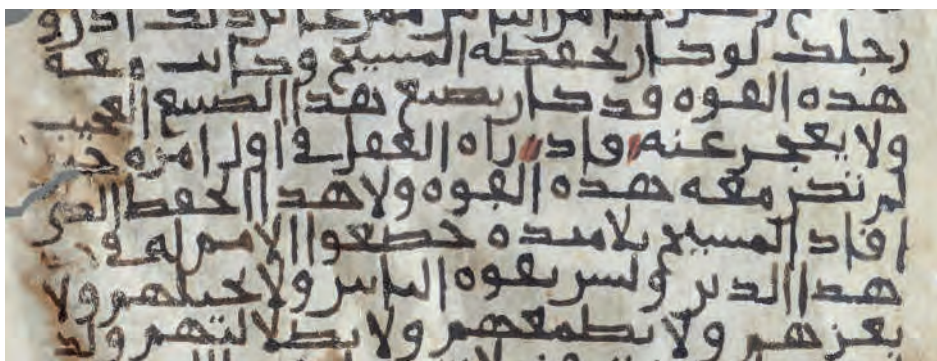 رجلت لو كان يحفظه المسيح وكانت معه
هذه القوه قد كان يصنع هذا الصنيع العجيب
ولا يعجز عنه فاذ نراه الفعل في اول امره حين
لم تكن معه هذه القوه ولا هذا الحفظ الذي
افاد المسيح تلاميذه خضعوا الامم له في
هذا الدين وليس بقوه الناس ولا بحيلهم ولا
بعزهم ولا بطمعهم ولا بضلالتهم